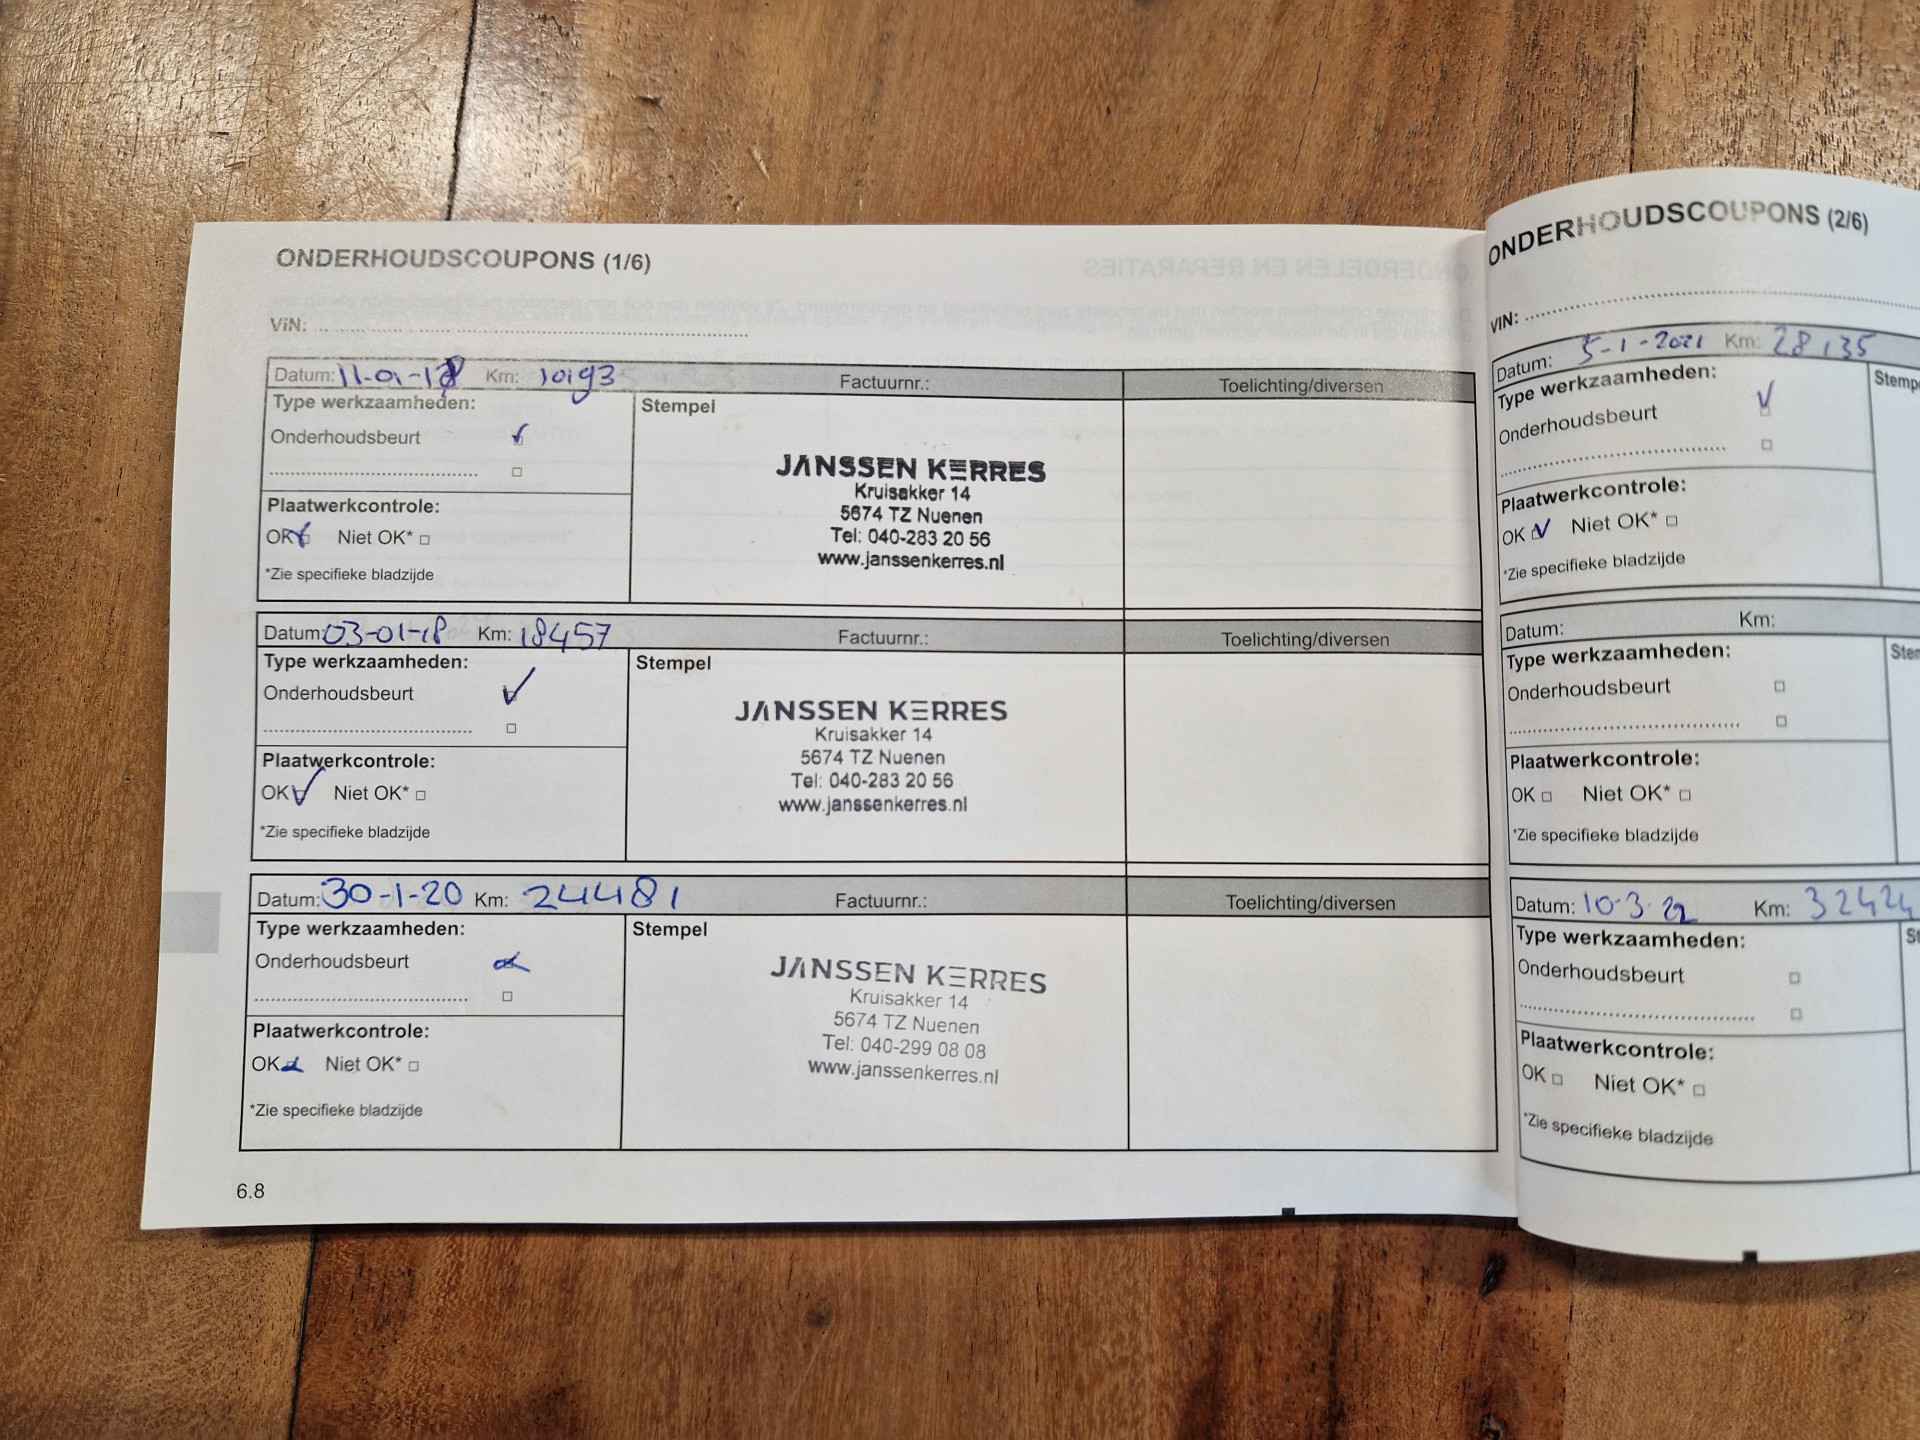 ONDERHOUDSCOUPONS (1/6)
VIN:
Datum: 11-01-18 Km: 10193 Factuurnr.: Toelichting/diversen
Type werkzaamheden: Stempel
Onderhoudsbeurt
JANSSEN KERRES
Kruisakker 14
5674 TZ Nuenen
Tel: 040-283 20 56
www.janssenkerres.nl
Plaatwerkcontrole:
OK Niet OK*
*Zie specifieke bladzijde
Datum: 03-01-18 Km: 18457 Factuurnr.: Toelichting/diversen
Type werkzaamheden: Stempel
Onderhoudsbeurt
JANSSEN KERRES
Kruisakker 14
5674 TZ Nuenen
Tel: 040-283 20 56
www.janssenkerres.nl
Plaatwerkcontrole:
OK Niet OK*
*Zie specifieke bladzijde
Datum: 30-1-20 Km: 24481 Factuurnr.: Toelichting/diversen
Type werkzaamheden: Stempel
Onderhoudsbeurt
JANSSEN KERRES
Kruisakker 14
5674 TZ Nuenen
Tel: 040-299 08 08
www.janssenkerres.nl
Plaatwerkcontrole:
OK Niet OK*
*Zie specifieke bladzijde
6.8
ONDERHOUDSCOUPONS (2/6)
VIN:
Datum: 5-1-2021 Km: 28135
Type werkzaamheden: Stemp
Onderhoudsbeurt
Plaatwerkcontrole:
OK Niet OK*
*Zie specifieke bladzijde
Datum: Km:
Type werkzaamheden: Stem
Onderhoudsbeurt
Plaatwerkcontrole:
OK Niet OK*
*Zie specifieke bladzijde
Datum: 10-3-22 Km: 32424
Type werkzaamheden: St
Onderhoudsbeurt
Plaatwerkcontrole:
OK Niet OK*
*Zie specifieke bladzijde